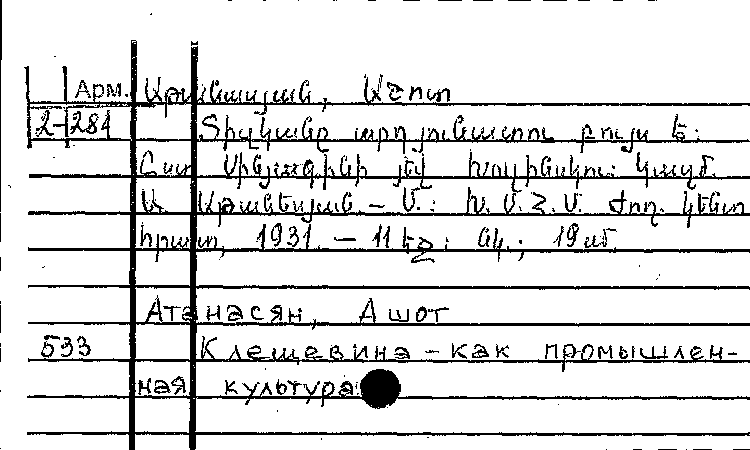 Арм. Աթանասյան, Աշոտ
2-284 Տիզկանը արդյունաբերու բույս է:
Ըստ Սինյագինի յեվ Խոլինսկու: Կազմ.
Ա. Աթանեսյան – Մ.: Խ. Մ. Հ. Մ. Ժող. կենտ
հրատ, 1931. – 11 եջ: նկ.; 19 սմ.
Атанасян, Ашот
533 Клещевина – как промышлен-
ная культура